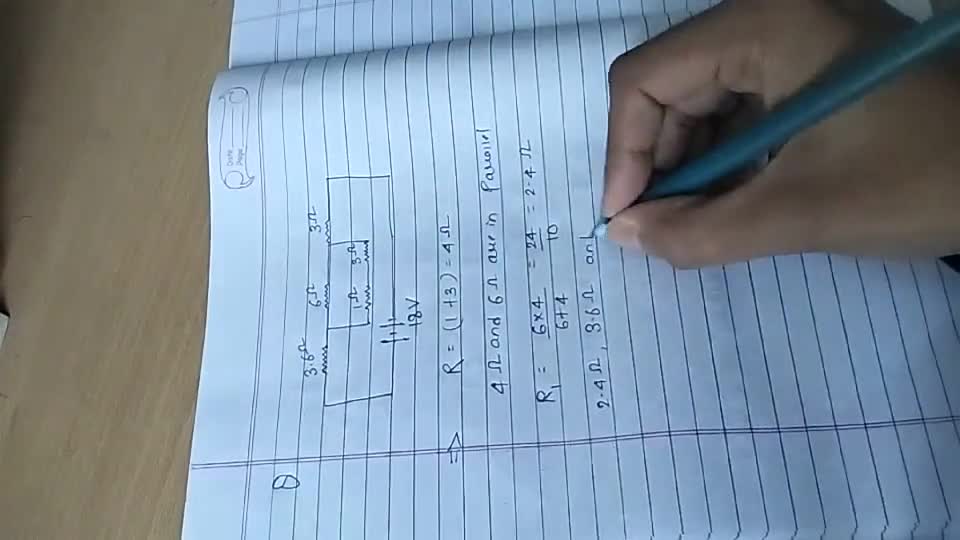 Date
Page
8
3.6Ω 6Ω 3Ω
1Ω 3Ω
18V
=> R = (1+3) = 4Ω
4Ω and 6Ω are in Parallel
R₁ = 6×4 / 6+4 = 24 / 10 = 2.4Ω
2.4Ω, 3.6Ω an